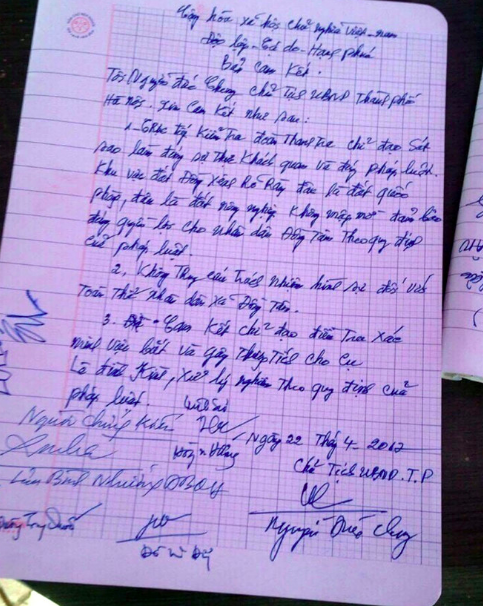 Cộng hòa xã hội chủ nghĩa Việt-nam
Độc lập - Tự do - Hạnh phúc
Bản Cam Kết.
Tôi Nguyễn Đức Chung, chủ tịch UBND Thành phố
Hà Nội. xin Cam Kết như sau:
1. Kiểm Tra đoàn Thanh Tra chỉ đạo Sát
sao làm đúng sự thật khách quan và đúng pháp luật.
Khu vực đất Đồng Sênh Rõ Ràng đâu là đất quốc
phòng, đâu là đất nông nghiệp không mập mờ đảm bảo
đúng quyền lợi cho nhân dân Đồng Tâm Theo quy định
của pháp luật.
2, Không Truy cứu Trách nhiệm hình sự đối với
Toàn Thể nhân dân xã Đồng Tâm.
3. Cam Kết chỉ đạo điều Tra Xác
minh việc bắt và gây Thương Tích cho Cụ
Lê Đình Kình, xử lý nghiêm Theo quy định của
pháp luật.
Người chứng kiến
Ngày 22 Thg 4-2017
Chủ Tịch UBND.T.P
Nguyễn Đức Chung